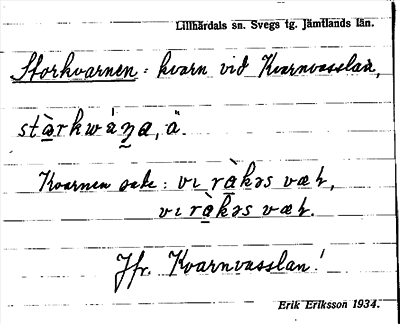 Lillhärdals sn. Svegs tg. Jämtlands län.
Storkvarnen: kvarn vid Kvarnvasslan,
stàrkwáṇa, ä.
Kvarnen sade: vi ràkəs væł,
vi ràkəs væł.
Jfr. Kvarnvasslan!
Erik Eriksson 1934.